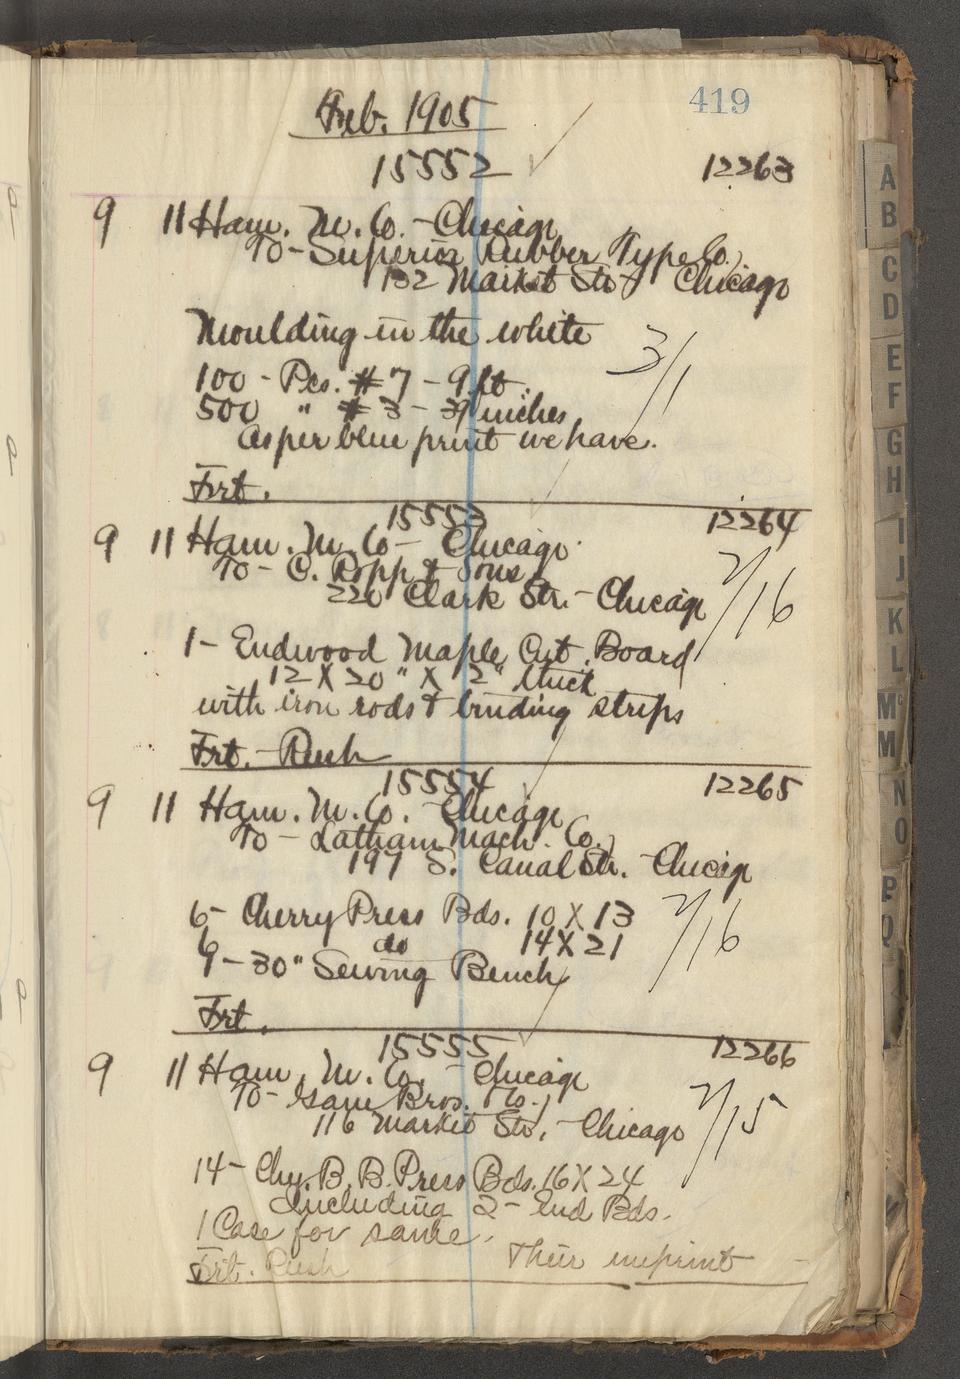 419
Feb. 1905
15552 12263
9 11 Ham. M. Co. - Chicago
To - Superior Rubber Type Co.
132 Market Str. Chicago
Moulding in the white
3/1
100 - Pcs. #7 - 9 ft.
500 " #3 - 39 inches
As per blue print we have.
Frt.
15553 12264
9 11 Ham. M. Co - Chicago
To - C. Popp & Sons
220 Clark Str. - Chicago
2/16
1 - Endwood Maple Cut. Board
12 X 20 " X 2" thick
with iron rods & binding strips
Frt. - Rush
15554 12265
9 11 Ham. M. Co. - Chicago
To - Latham Mach. Co.
197 S. Canal Str. - Chicago
6 - Cherry Press Bds. 10 X 13
2/16
6 do 14 X 21
9 - 30" Sewing Bench
Frt.
15555 12266
9 11 Ham. M. Co. - Chicago
To - Gane Bros. Co.
116 Market Str. - Chicago
2/15
14 - Chy. B. B. Press Bds. 16 X 24
Including 2 - End Bds.
1 Case for same.
Their imprint
Frt. Rush
A
B
C
D
E
F
G
H
I
J
K
L
Mc
M
N
O
P
Q